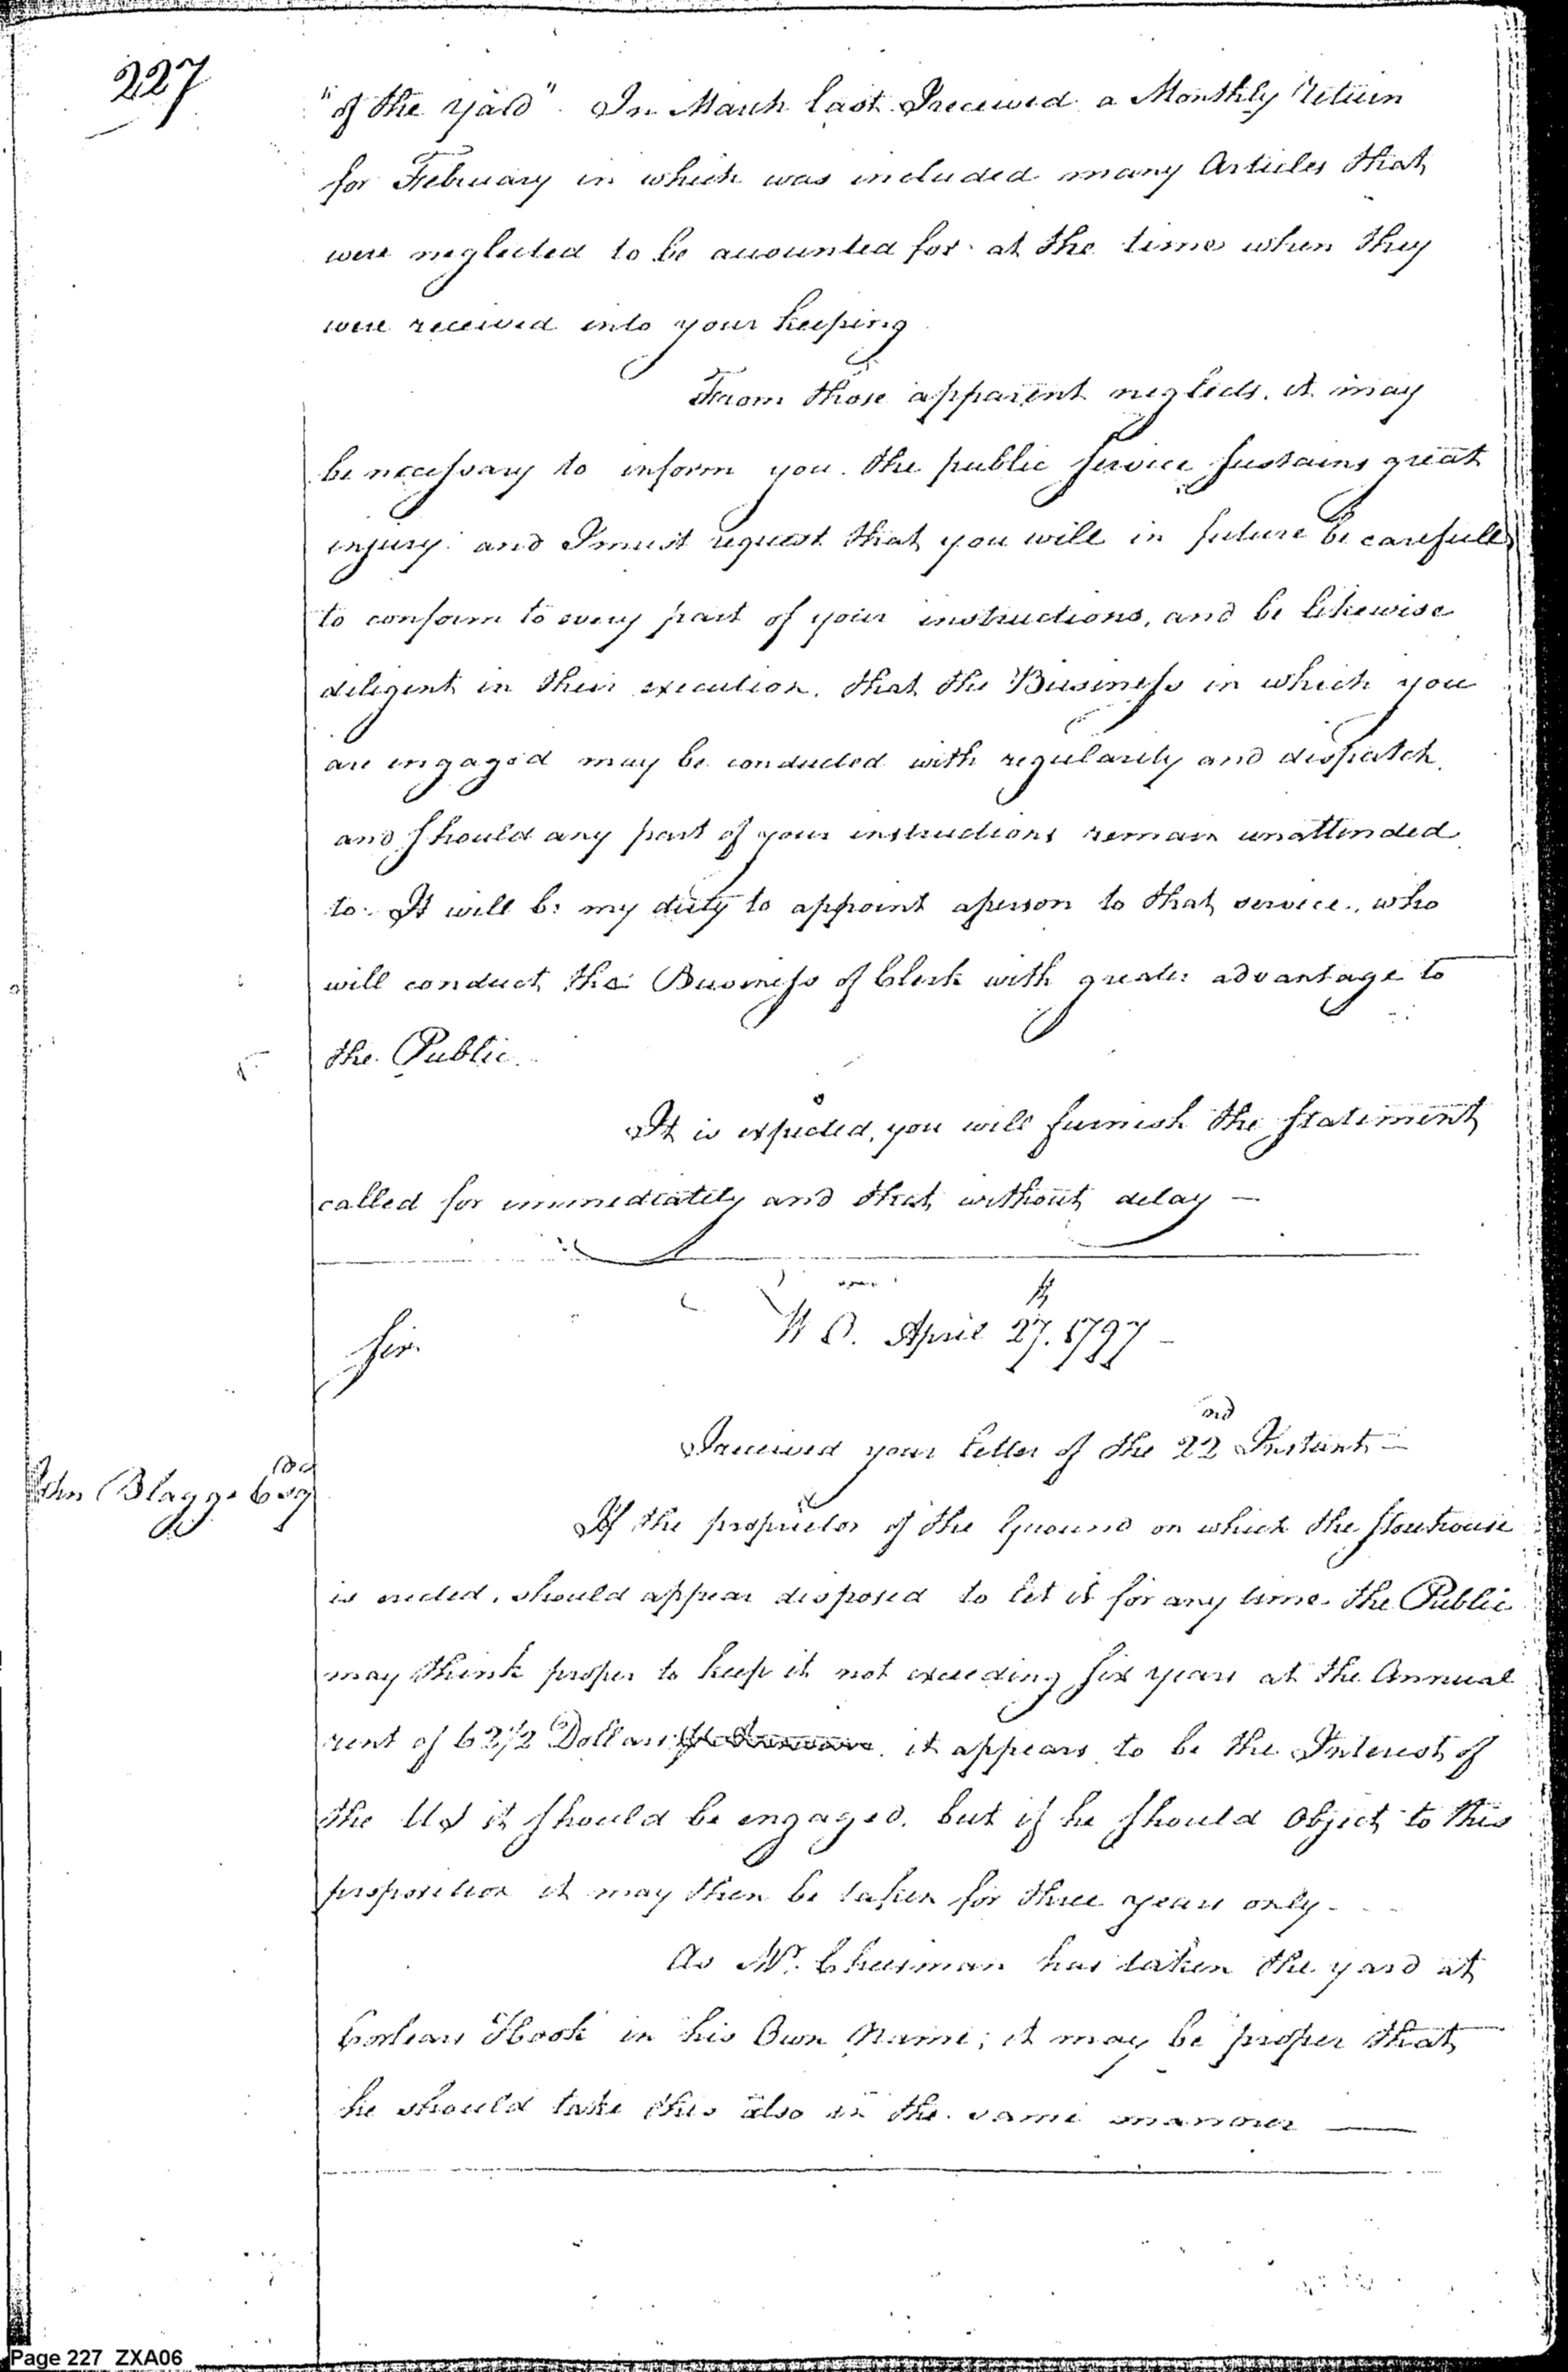 227
"of the yard". In March last I received a Monthly return
for February in which was included many Articles that
were neglected to be accounted for at the time when they
were received into your keeping
From those apparent neglects, it may
be necessary to inform you. the public service sustains great
injury: and I must request that you will in future be carefull
to conform to every part of your instructions, and be likewise
diligent in their execution, that the Business in which you
are engaged may be conducted with regularity and dispatch.
and should any part of your instructions remain unattended
to. It will be my duty to appoint a person to that service, who
will conduct the Business of Clerk with greater advantage to
the Public.
It is expected, you will furnish the statement
called for immediately and that without delay —
W O. April 27th. 1797 —
Sir.
I received your letter of the 22nd Instant —
John Blagge Esq
If the proprietor of the Ground on which the storehouse
is erected, should appear disposed to let it for any time the Public
may think proper to keep it not exceeding six years at the Annual
rent of 62 1/2 Dollars it appears to be the Interest of
the US it should be engaged. but if he should Object to this
proposition it may then be taken for three years only -
As Mr. Cheesman has taken the yard at
Corlears Hook in his Own Name; it may be proper that
he should take this also in the same manner —
Page 227 ZXA06